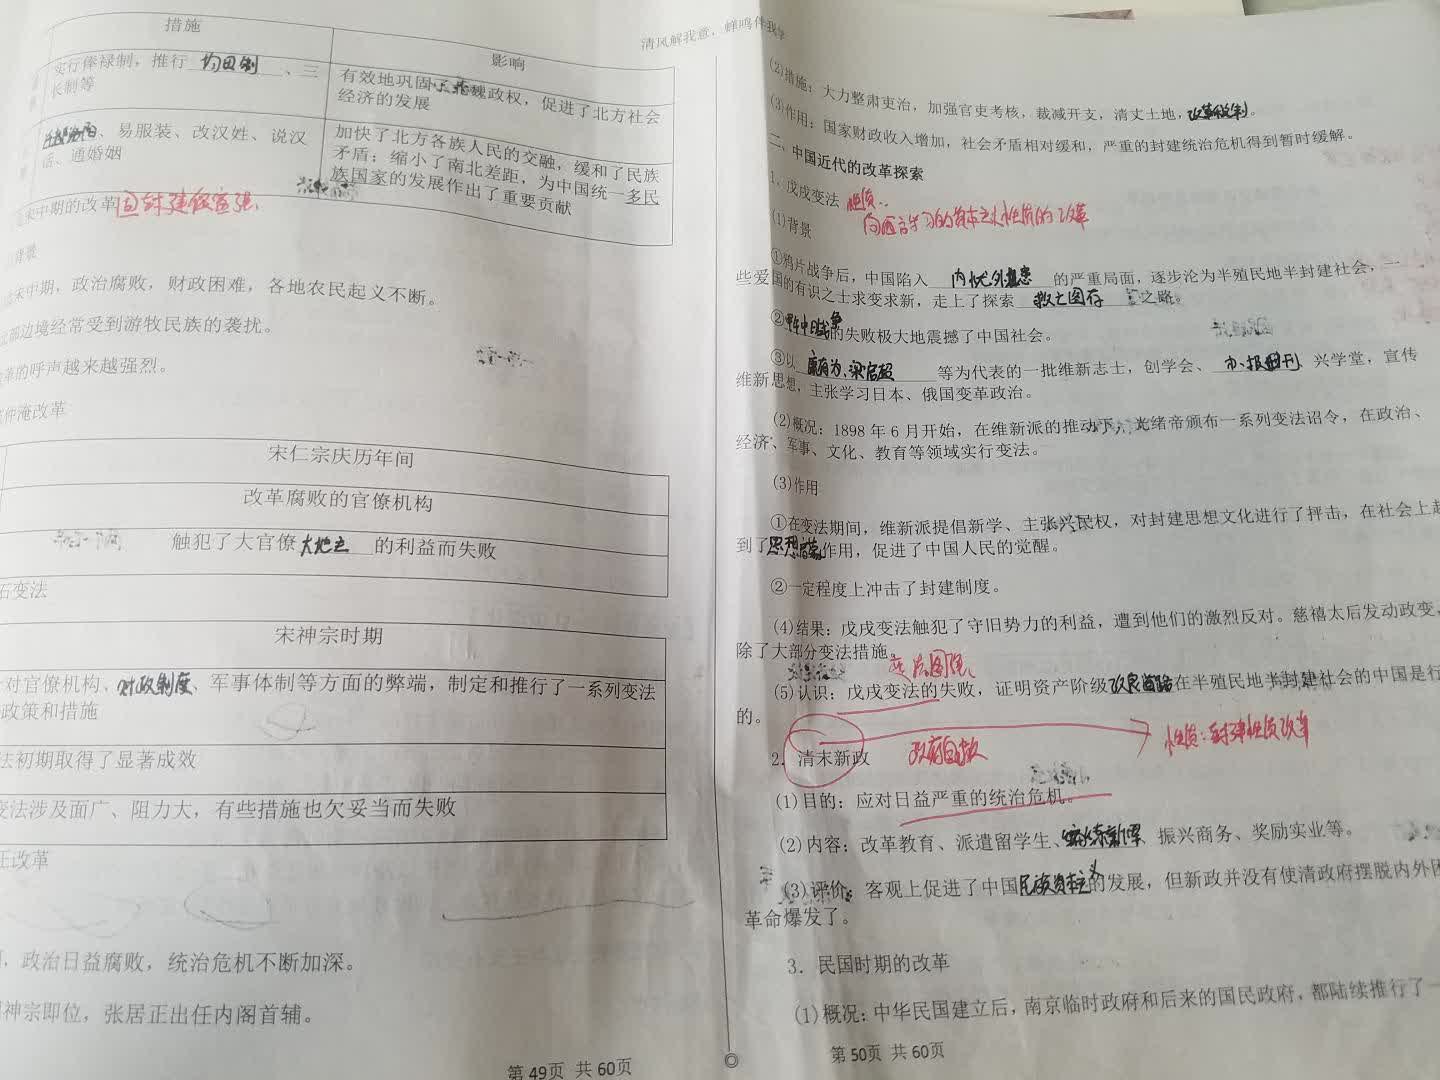 措施
影响
实行俸禄制，推行 均田制 、三
长制等
有效地巩固了北魏政权，促进了北方社会
经济的发展
、易服装、改汉姓、说汉
话、通婚姻
加快了北方各族人民的交融，缓和了民族
矛盾；缩小了南北差距，为中国统一多民
族国家的发展作出了重要贡献
宋中期的改革
背景
宋中期，政治腐败，财政困难，各地农民起义不断。
北部边境经常受到游牧民族的袭扰。
革的呼声越来越强烈。
仲淹改革
宋仁宗庆历年间
改革腐败的官僚机构
触犯了大官僚大地主 的利益而失败
石变法
宋神宗时期
对官僚机构、财政制度、军事体制等方面的弊端，制定和推行了一系列变法
政策和措施
法初期取得了显著成效
变法涉及面广、阻力大，有些措施也欠妥当而失败
正改革
，政治日益腐败，统治危机不断加深。
神宗即位，张居正出任内阁首辅。
第 49页 共 60页
清风解我意，蝉鸣伴我
(2)措施：大力整肃吏治，加强官吏考核，裁减开支，清丈土地，改革税制。
(3)作用：国家财政收入增加，社会矛盾相对缓和，严重的封建统治危机得到暂时缓解。
二、中国近代的改革探索
1、戊戌变法 性质：
向西方学习的资本主义性质的改革
(1)背景
①鸦片战争后，中国陷入 内忧外患 的严重局面，逐步沦为半殖民地半封建社会，一
些爱国的有识之士求变求新，走上了探索 救亡图存 之路。
②甲午中日战争的失败极大地震撼了中国社会。
③以 康有为、梁启超 等为代表的一批维新志士，创学会、 办报刊、兴学堂，宣传
维新思想，主张学习日本、俄国变革政治。
(2)概况：1898 年 6 月开始，在维新派的推动下，光绪帝颁布一系列变法诏令，在政治、
经济、军事、文化、教育等领域实行变法。
(3)作用
①在变法期间，维新派提倡新学、主张兴民权，对封建思想文化进行了抨击，在社会上起
到了思想启蒙作用，促进了中国人民的觉醒。
②一定程度上冲击了封建制度。
(4)结果：戊戌变法触犯了守旧势力的利益，遭到他们的激烈反对。慈禧太后发动政变，
除了大部分变法措施。
变法图强
(5)认识：戊戌变法的失败，证明资产阶级改良道路在半殖民地半封建社会的中国是行
的。
2. 清末新政 政府自救 性质：封建性质改革
(1)目的：应对日益严重的统治危机。
(2)内容：改革教育、派遣留学生、编练新军、振兴商务、奖励实业等。
(3)评价：客观上促进了中国民族资本主义的发展，但新政并没有使清政府摆脱内外困
革命爆发了。
3．民国时期的改革
(1)概况：中华民国建立后，南京临时政府和后来的国民政府，都陆续推行了一
第 50页 共 60页